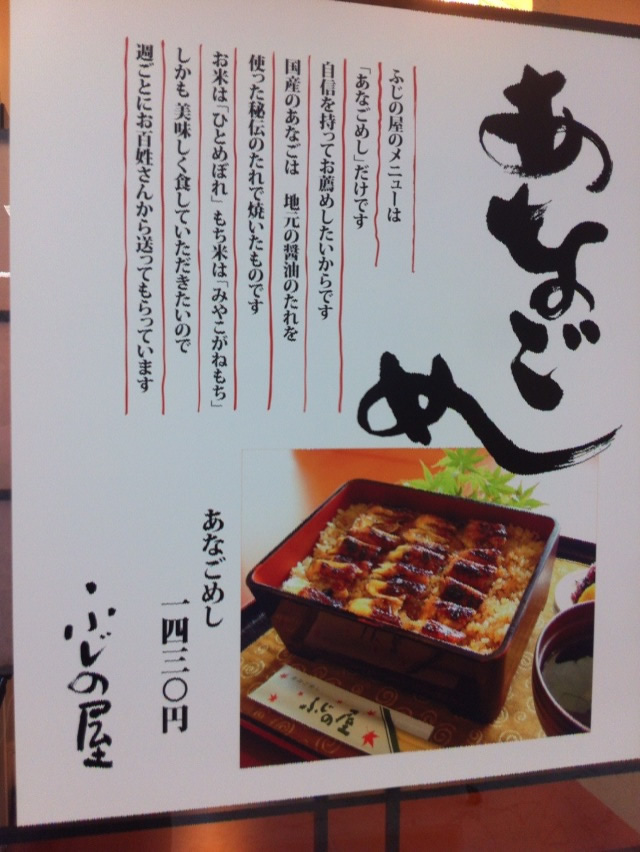 あなごめし
ふじの屋のメニューは
「あなごめし」だけです
自信を持ってお薦めしたいからです
国産のあなごは 地元の醤油のたれを
使った秘伝のたれで焼いたものです
お米は「ひとめぼれ」もち米は「みやこがねもち」
しかも 美味しく食していただきたいので
週ごとにお百姓さんから送ってもらっています
あなごめし
一四三〇円
ふじの屋
ふじの屋